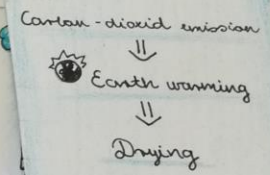 Carbon-dioxid emission
Earth warming
Drying